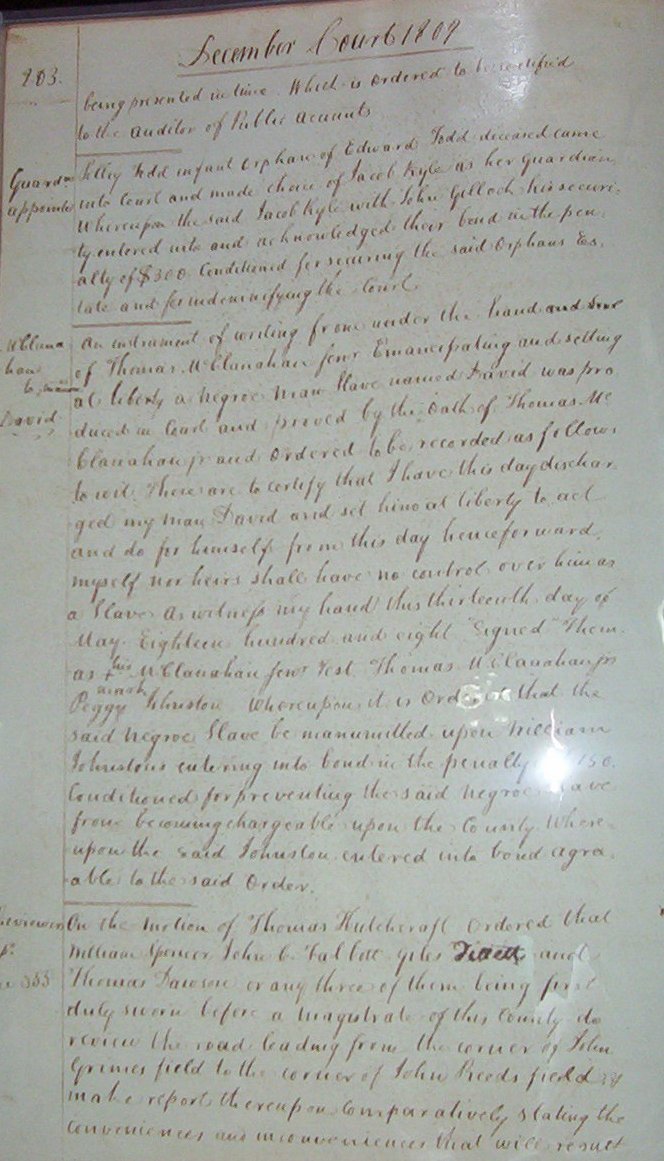 December Court 1809
283.
being presented in time Which is ordered to be certified
to the auditor of Public Accounts
Guardn
appointed
Polley Todd infant orphan of Edward Todd deceased came
into Court and made choice of Jacob Kyle as her guardian
Whereupon the said Jacob Kyle with John Gilloch his securi-
ty entered into and acknowledged their bond in the pen-
alty of $300 Conditioned for securing the said Orphans Es-
tate and for indemnifying the Court
McClana
han
to
David
An instrument of writing from under the hand and seal
of Thomas McClanahan senr Emancipating and setting
at liberty a negroe man Slave named David was pro
duced in Court and proved by the Oath of Thomas Mc
Clanahan jr and Ordered to be recorded as follows
to wit. These are to certify that I have this day dischar
ged my man David and set him at liberty to act
and do for himself from this day henceforward,
myself nor heirs shall have no control over him as
a Slave As witness my hand this thirteenth day of
May Eighteen hundred and eight "Signed" Thom-
as his + mark McClanahan senr Test Thomas McClanahan jr
Peggy Johnston Whereupon it is Ordered that the
said negroe Slave be manumitted upon William
Johnstons entering into bond in the penalty 150.
Conditioned for preventing the said negroe Slave
from becoming chargeable upon the County Where-
upon the said Johnston entered into bond agra-
able to the said Order.
On the motion of Thomas Hutchcraft Ordered that
William Spencer John C. Talbott Giles and
Thomas Dawson or any three of them being first
duly sworn before a magistrate of this County do
review the road leading from the corner of John
Grimes field to the corner of John Reeds field &
make report thereupon Comparatively stating the
conveniences and inconveniences that will result